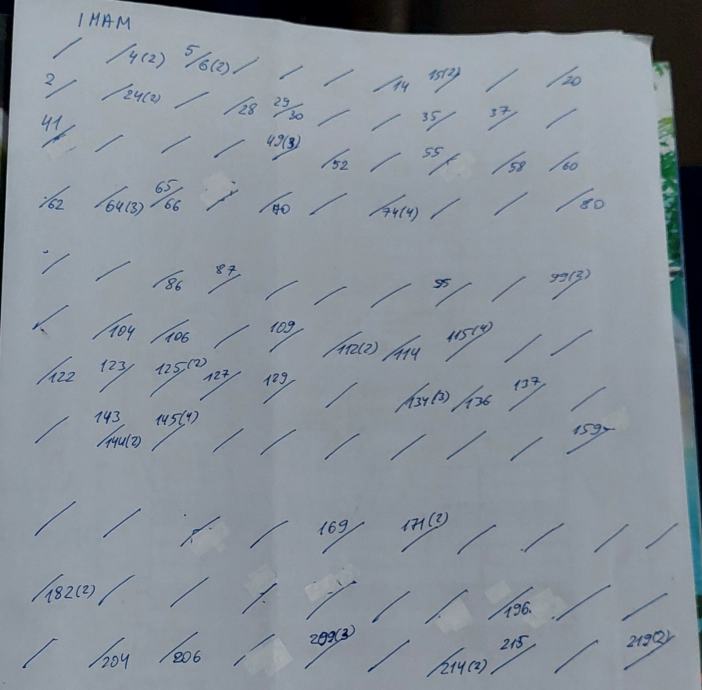 IMAM
/ /4(2) 5/6(2) / / / /14 15(2)/ / /20
2/ /24(2) / /28 29/30 / / 35/ 37/ /
41/ / / / 49(3)/ /52 / 55/ /58 /60
/62 /64(3) 65/66 / /70 / /74(4) / / /80
/ / /86 87/ / / / 95/ / 99(3)/
/ /104 /106 / 109/ /112(2) /114 115(4)/ / /
/122 123/ 125(2)/ 127/ 129/ / /134(3) /136 137/ /
/ 143/144(2) 145(4)/ / / / / / / 159/
/ / / / 169/ 171(2)/ / / / /
/182(2) / / / / / / /196 / /
/ /204 /206 / 209(3)/ / /214(2) 215/ / 219(2)/